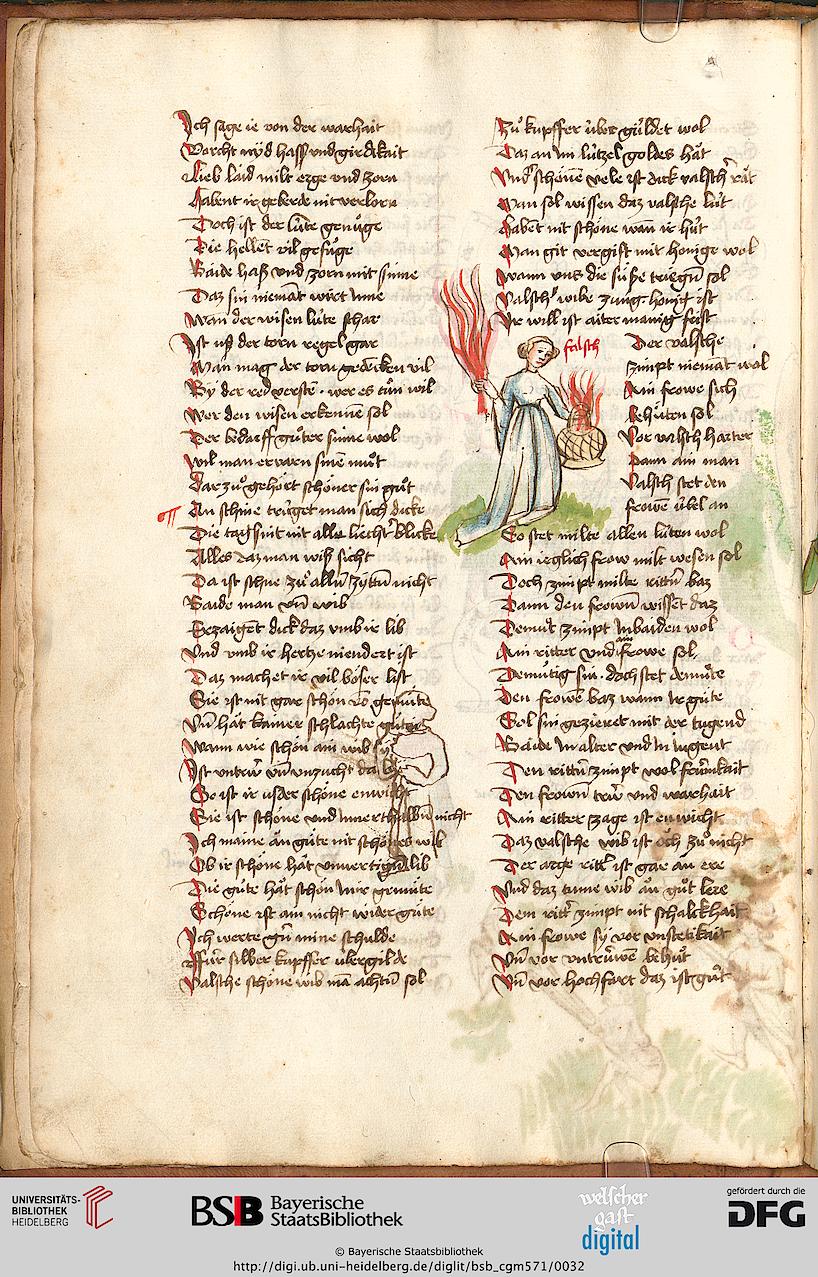 Ich sage ie von der warhait
Vorcht nyd hass vnd girdikait
Lieb laid milt erge vnd zorn
Habent ir geberde nit verlorn
Doch ist der lute genuͦge
Die hellet vil gefuͤge
Baide haß vnd zorn mit sinne
Daz sin niemat wirt Inne
Wan der wisen lute schar
Ist uß der torn regel gar
Man mag der torn gedecken vil
By der red verste wer es tun wil
Wer den wisen erkenne sol
Der bedarff guͦter sinne wol
Wil man ervarn sinen muͦt
Dar zuͦ gehoͤrt schoͤner sin guͦt
An schine truget man sich dicke
Die tag sint nit alle liecht blicke
Alles daz man wiß sicht
Da ist schne zuͦ allen zyten nicht
Baide man vn wib
Bezaiget dick daz vmb ir lib
Vnd vmb ir hertze niendert ist
Daz machet ir vil boͤser list
Sie ist nit gar schoͤn vo gemuͤte
Vn hat kainer schlachte guͤte
Wann wie schoͤn ain wib sy
Ist untrw vn vnzucht da by
So ist ir usser schoͤne enwicht
Sie ist schoͤne vnd Innerthalben nicht
Ich maine an guͤte nit schoͤnes wib
Ob ir schoͤne hat vnvertigen lib
Die guͤte hat schoͤn Inir gemuͤte
Schoͤne ist ain nicht wider guͤte
Ich werte gn mine schulde
Fur silber kupffer ubergilde
Valsche schoͤne wib ma achten sol
Zuͦ kupffer uber guldet wol
Daz an Im lutzel goldes hat
Vnd schoͤnen vele ist dick valsch rat
Man sol wissen daz valsche lut
Habent nit schoͤne wan ir hut
Man git vergift mit honige wol
Wann vns die suͤße triegen sol
Valsch wibe zung honig ist
Ir will ist aiter manig frist
falsch
Der valsche
zimpt niemat wol
Ain frowe sich
behuͤten sol
Vor valsch harter
Dann ain man
Valsch stet den
frowen ubel an
So stet milte allen luten wol
Ain ieglich frow milt wesen sol
Doch zimpt milte rittern baz
Dann den frowen wisset daz
Demuͦt zimpt In baiden wol
Ain ritter vnd ain frowe sol
Demuͤtig sin doch stet demuͤte
Den frowen baz wann Ir guͤte
Sol sin gezieret mit der tugend
Baide In alter vnd In iugent
Den rittern zimpt wol frumkait
Den frowen trw vnd warhait
Ain ritter zage ist enwicht
Daz valsche wib ist och zuͦ nicht
Der arge ritter ist gar an ere
Vnd daz tume wib an guͦt lere
Dem ritter zimpt nit schalckhait
Ain frowe sy vor vnstetikait
Vn vor untruwen behuͦt
Vn vor hochfart daz ist guͦt
UNIVERSITÄTS-
BIBLIOTHEK
HEIDELBERG
BSB Bayerische
StaatsBibliothek
welscher
gast
digital
gefördert durch die
DFG
© Bayerische Staatsbibliothek
http://digi.ub.uni-heidelberg.de/diglit/bsb_cgm571/0032